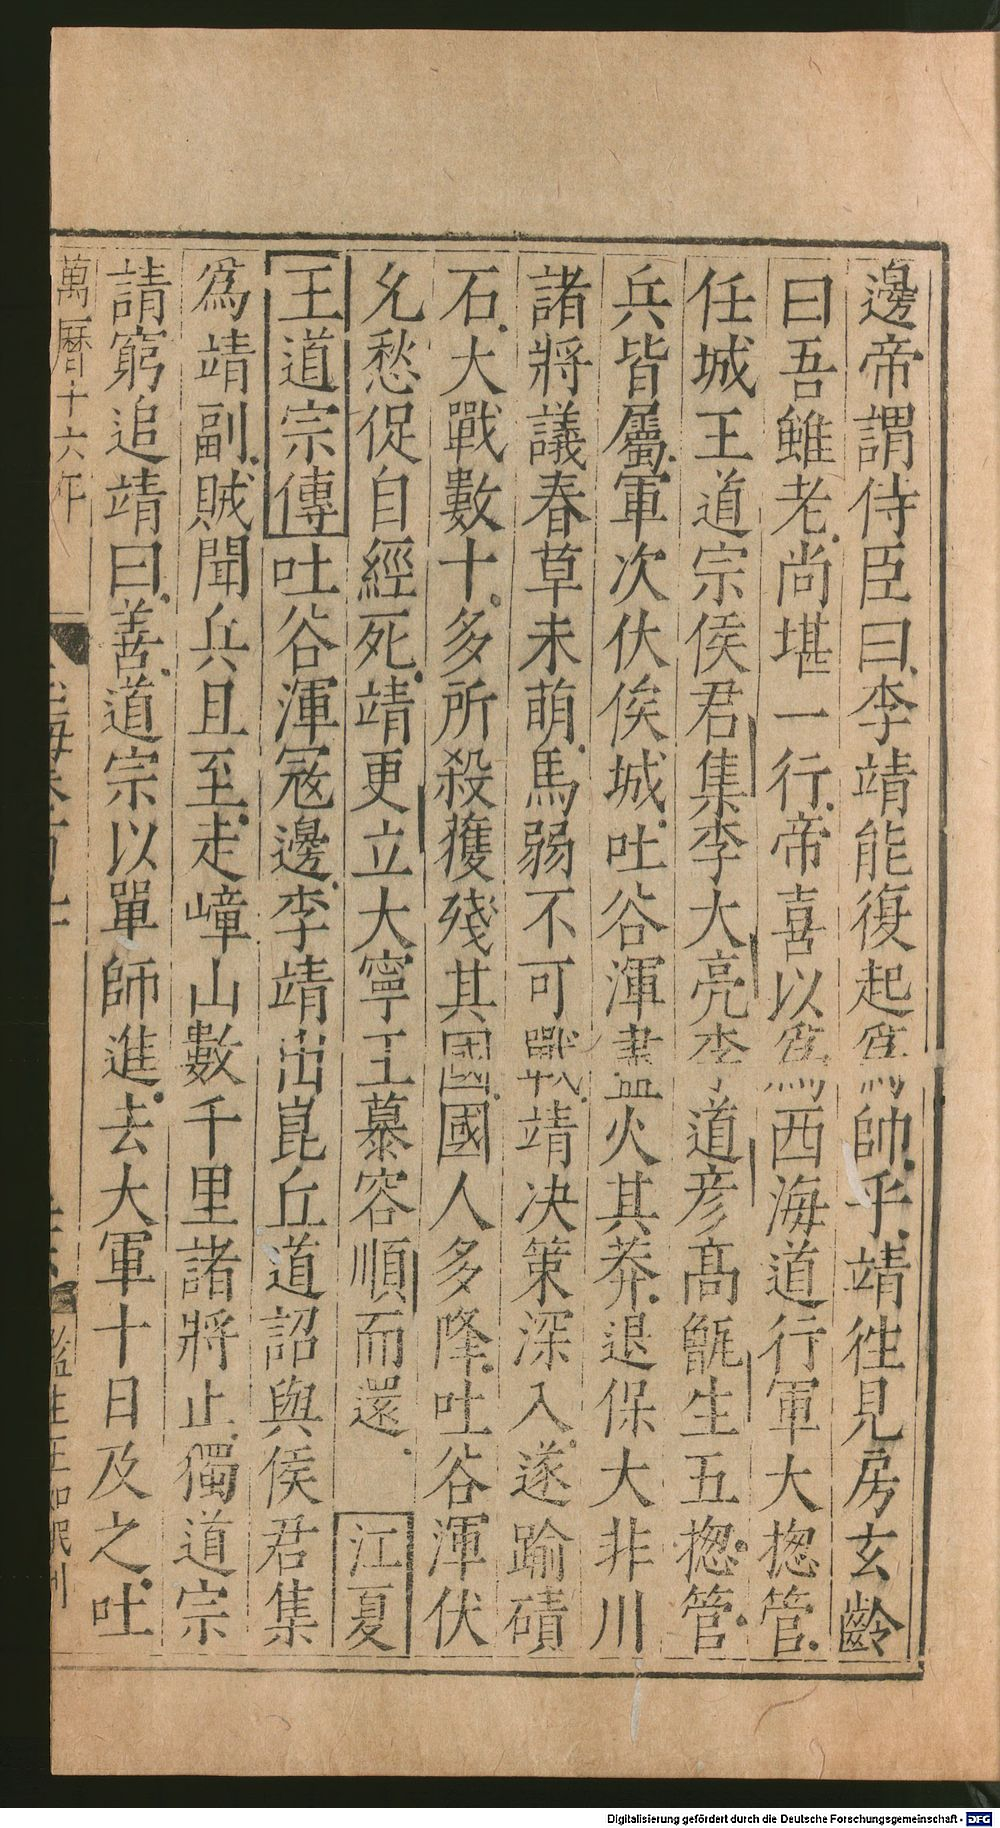 邊帝謂侍臣曰李靖能復起爲帥乎靖徃見房玄齡
曰吾雖老尚堪一行帝喜以爲西海道行軍大揔管
任城王道宗侯君集李大亮李道彦髙甑生五揔管
兵皆屬軍次伏俟城吐谷渾盡火其莽退保大非川
諸將議春草未萌馬弱不可戰靖决策深入遂踰磧
石大戰數十多所殺獲殘其國國人多降吐谷渾伏
允愁促自經死靖更立大寧王慕容順而還 江夏
王道宗傳吐谷渾宼邊李靖出崑丘道詔與侯君集
爲靖副賊聞兵且至走嶂山數千里諸將止獨道宗
請窮追靖曰善道宗以單師進去大軍十日及之吐
萬曆十六年
監生
Digitalisierung gefördert durch die Deutsche Forschungsgemeinschaft - DFG